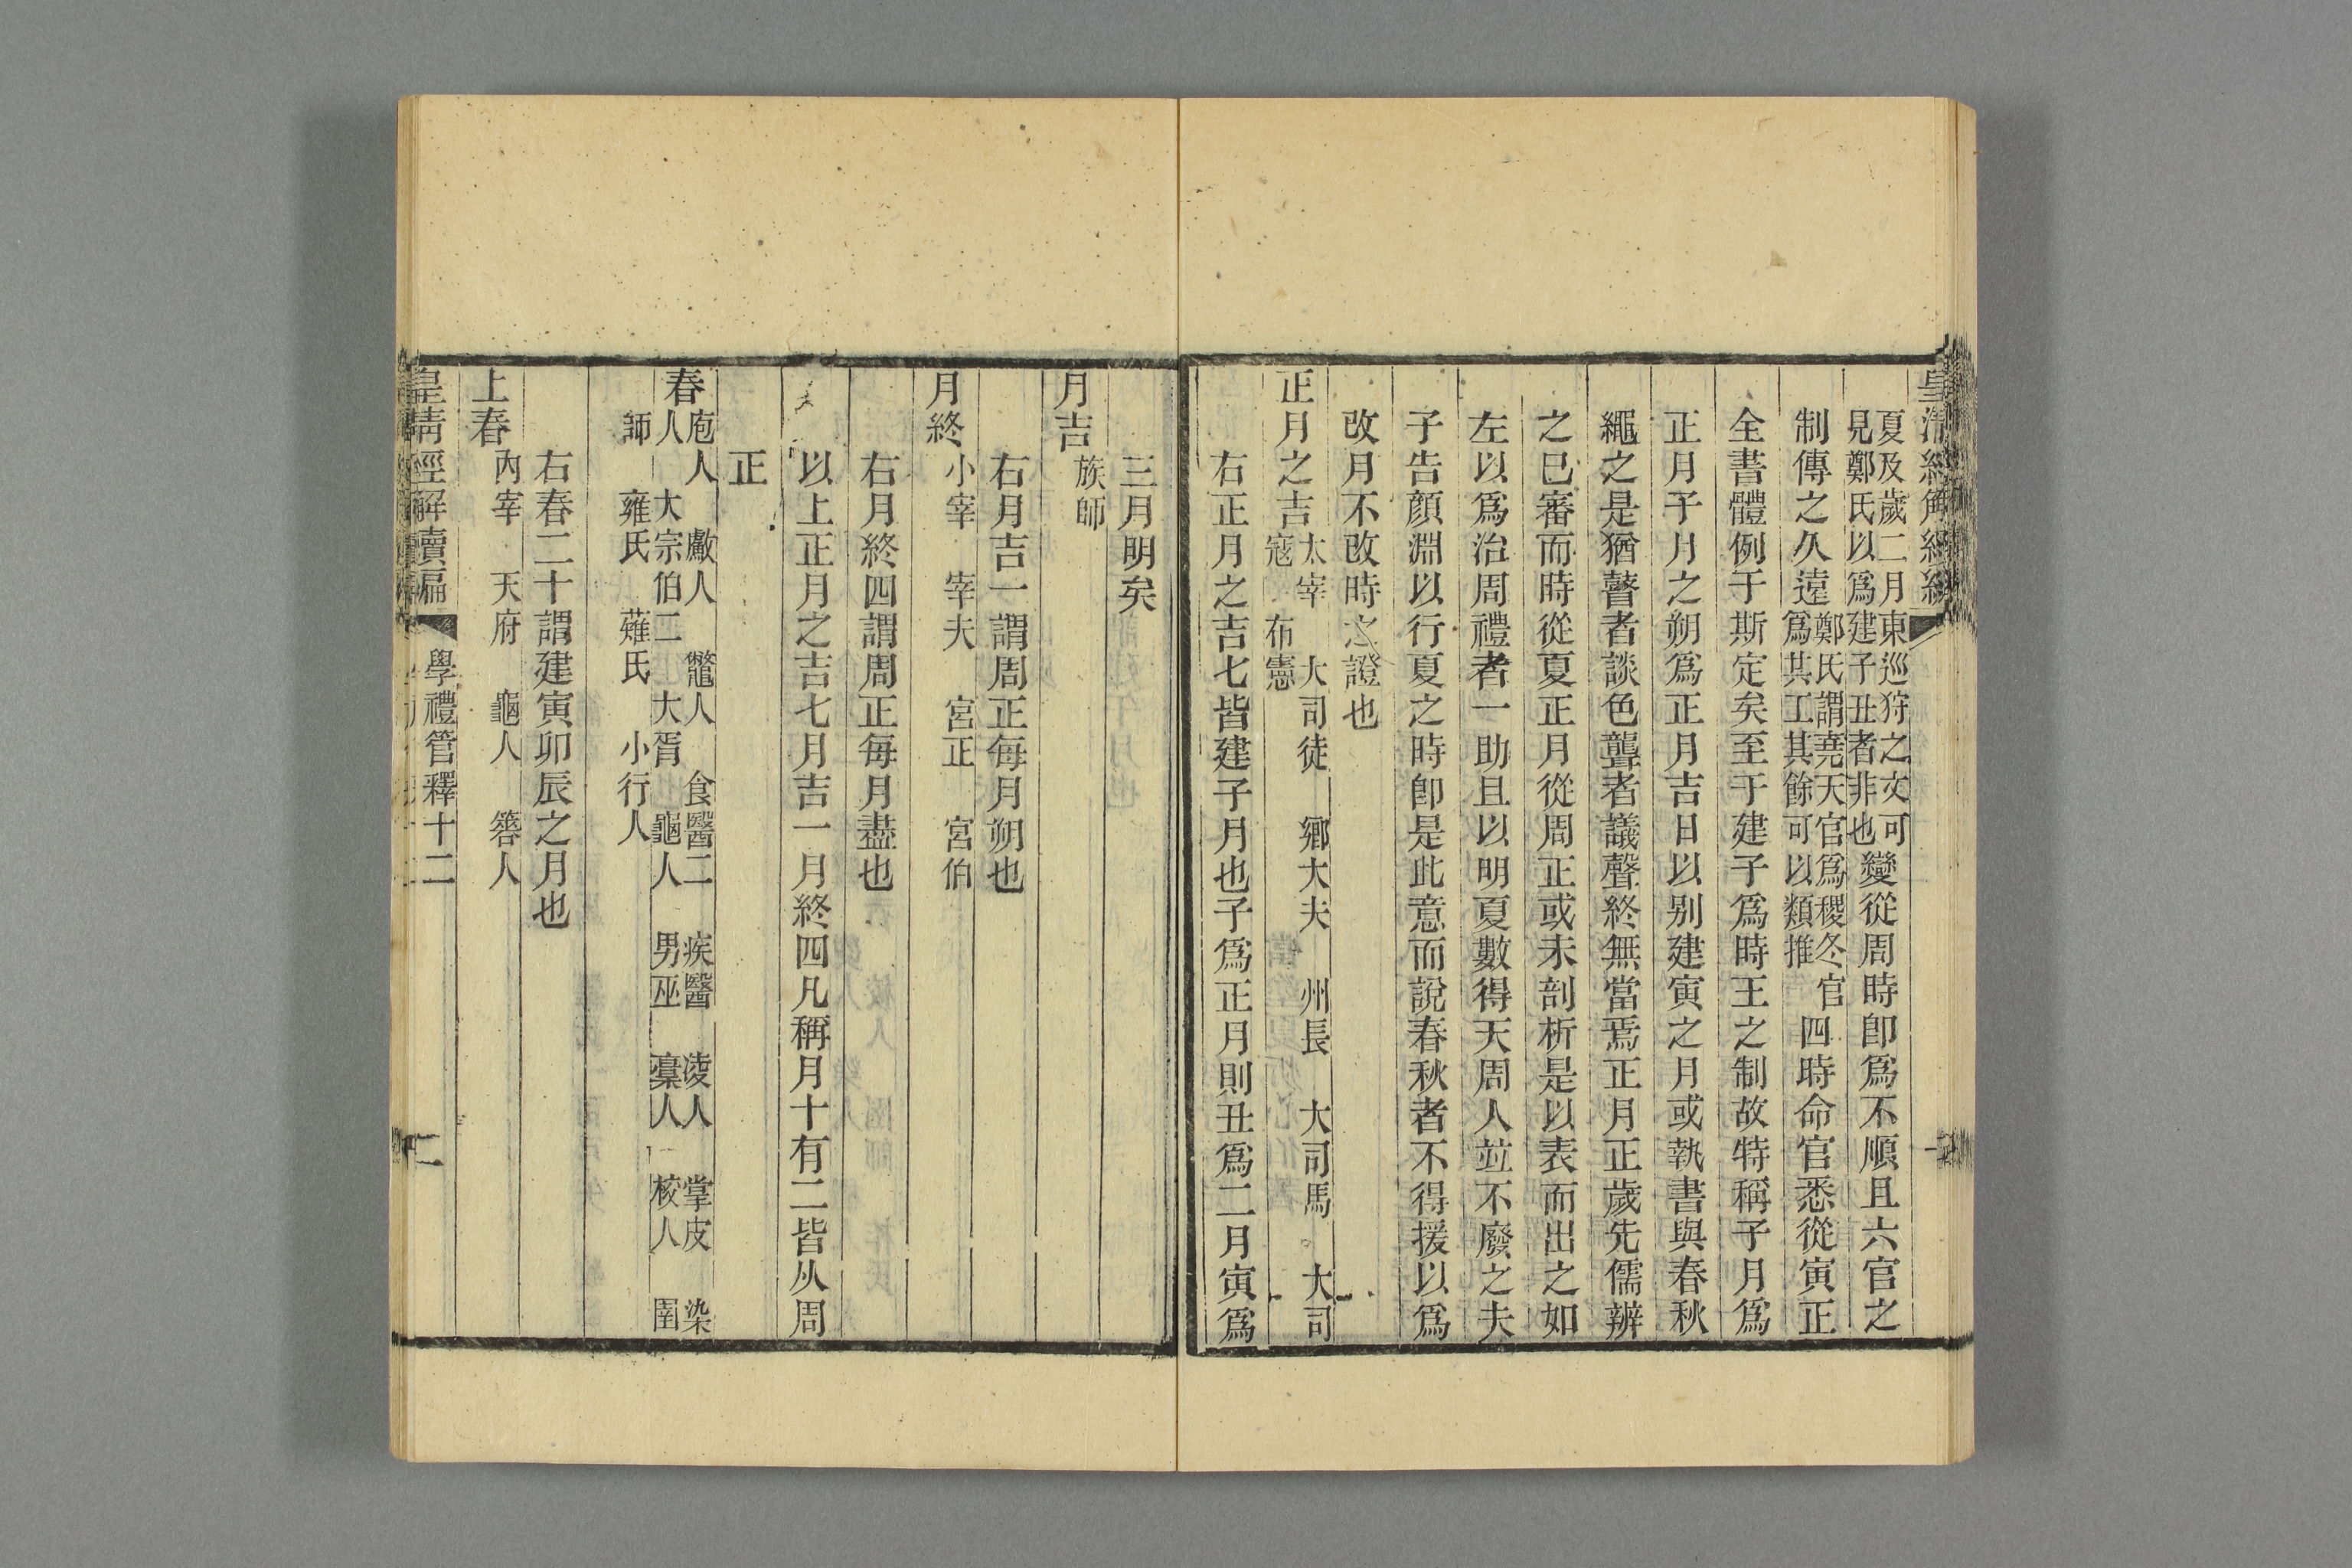 夏及歲二月東巡狩之文可
見鄭氏以爲建子丑者非也
變從周時卽爲不順且六官之
制傳之久遠
鄭氏謂堯天官爲稷冬官
爲其工其餘可以類推
四時命官悉從寅正
全書體例于斯定矣至于建子爲時王之制故特稱子月爲
正月子月之朔爲正月吉日以别建寅之月或執書與春秋
繩之是猶瞽者談色聾者議聲終無當焉正月正歲先儒辨
之已審而時從夏正月從周正或未剖析是以表而出之如
左以爲治周禮者一助且以明夏數得天周人並不廢之夫
子告顔淵以行夏之時卽是此意而說春秋者不得援以爲
改月不改時之證也
正月之吉
太宰 大司徒 鄉大夫 州長 大司馬 大司
寇 布憲
右正月之吉七皆建子月也子爲正月則丑爲二月寅爲
三月明矣
月吉
族師
右月吉一謂周正每月朔也
月終
小宰 宰夫 宮正 宮伯
右月終四謂周正每月盡也
以上正月之吉七月吉一月終四凡稱月十有二皆从周
正
春
庖人 䱷人 鼈人 食醫二 疾醫 凌人 掌皮 染
人 大宗伯二 大胥 龜人 男巫 槀人 校人 圉
師 雍氏 薙氏 小行人
右春二十謂建寅卯辰之月也
上春
內宰 天府 龜人 簭人
皇清經解續編
學禮管釋十二
二